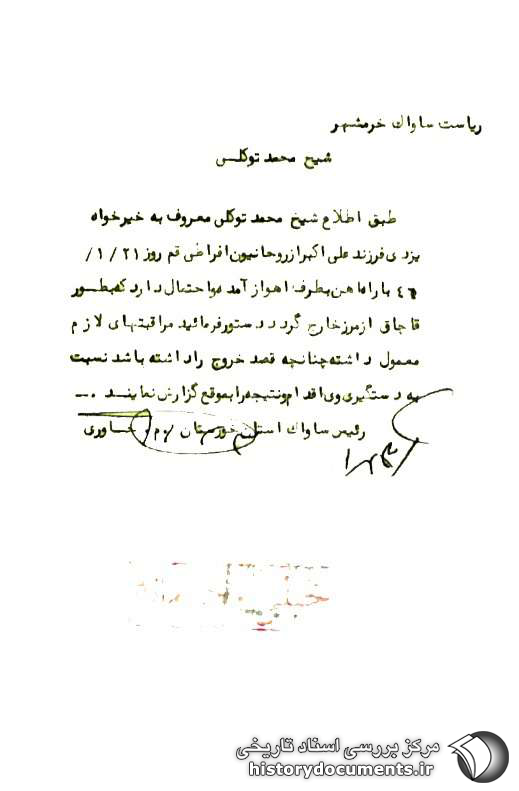 ریاست ساواک خرمشهر
شیخ محمد توکلی
طبق اطلاع شیخ محمد توکلی معروف به خیرخواه
یزدی فرزند علی اکبر از روحانیون افراطی قم روز ۲۱/۱/
۴۶ با راه آهن بطرف اهواز آمده و احتمال دارد که بطور
قاچاق از مرز خارج گردد دستور فرمائید مراقبتهای لازم
معمول داشته چنانچه قصد خروج را داشته باشد نسبت
به دستگیری وی اقدام و نتیجه را بموقع گزارش نمایند .ـ
رئیس ساواک استان خوزستان
مرکز بررسی اسناد تاریخی
historydocuments.ir